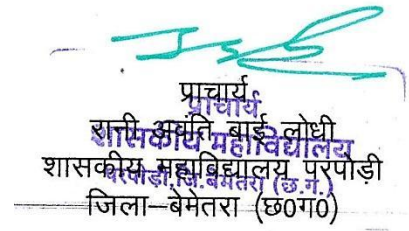 प्राचार्य
प्राचार्य
रानी अवंति बाई लोधी
शासकीय महाविद्यालय
शासकीय महाविद्यालय परपोड़ी
परपोड़ी,जि.बेमेतरा (छ.ग.)
जिला–बेमेतरा (छ0ग0)